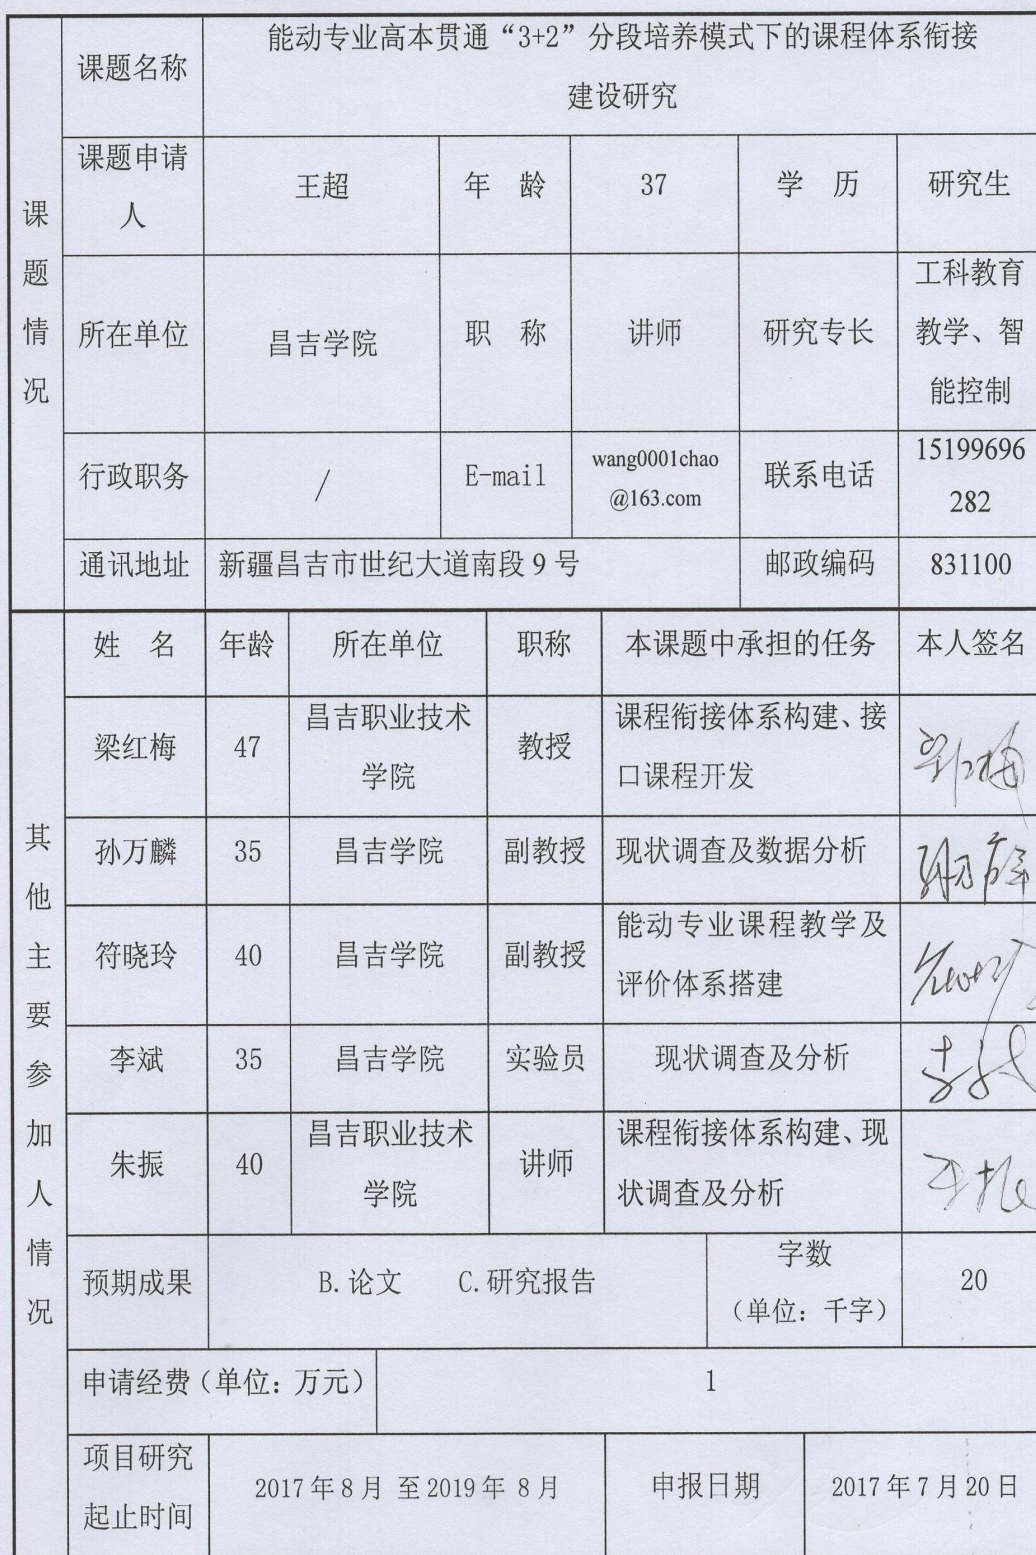 能动专业高本贯通“3+2”分段培养模式下的课程体系衔接
课题名称
建设研究
课题申请
人
王超
年 龄
37
学 历
研究生
课题情况
所在单位
昌吉学院
职 称
讲师
研究专长
工科教育
教学、智
能控制
行政职务
/
E-mail
wang0001chao
@163.com
联系电话
15199696
282
通讯地址
新疆昌吉市世纪大道南段9号
邮政编码
831100
姓 名
年龄
所在单位
职称
本课题中承担的任务
本人签名
梁红梅
47
昌吉职业技术
学院
教授
课程衔接体系构建、接
口课程开发
孙万麟
35
昌吉学院
副教授
现状调查及数据分析
其他主要参加人情况
符晓玲
40
昌吉学院
副教授
能动专业课程教学及
评价体系搭建
李斌
35
昌吉学院
实验员
现状调查及分析
朱振
40
昌吉职业技术
学院
讲师
课程衔接体系构建、现
状调查及分析
预期成果
B.论文 C.研究报告
字数
（单位：千字）
20
申请经费（单位：万元）
1
项目研究
起止时间
2017年8月 至2019年 8月
申报日期
2017年7月20日